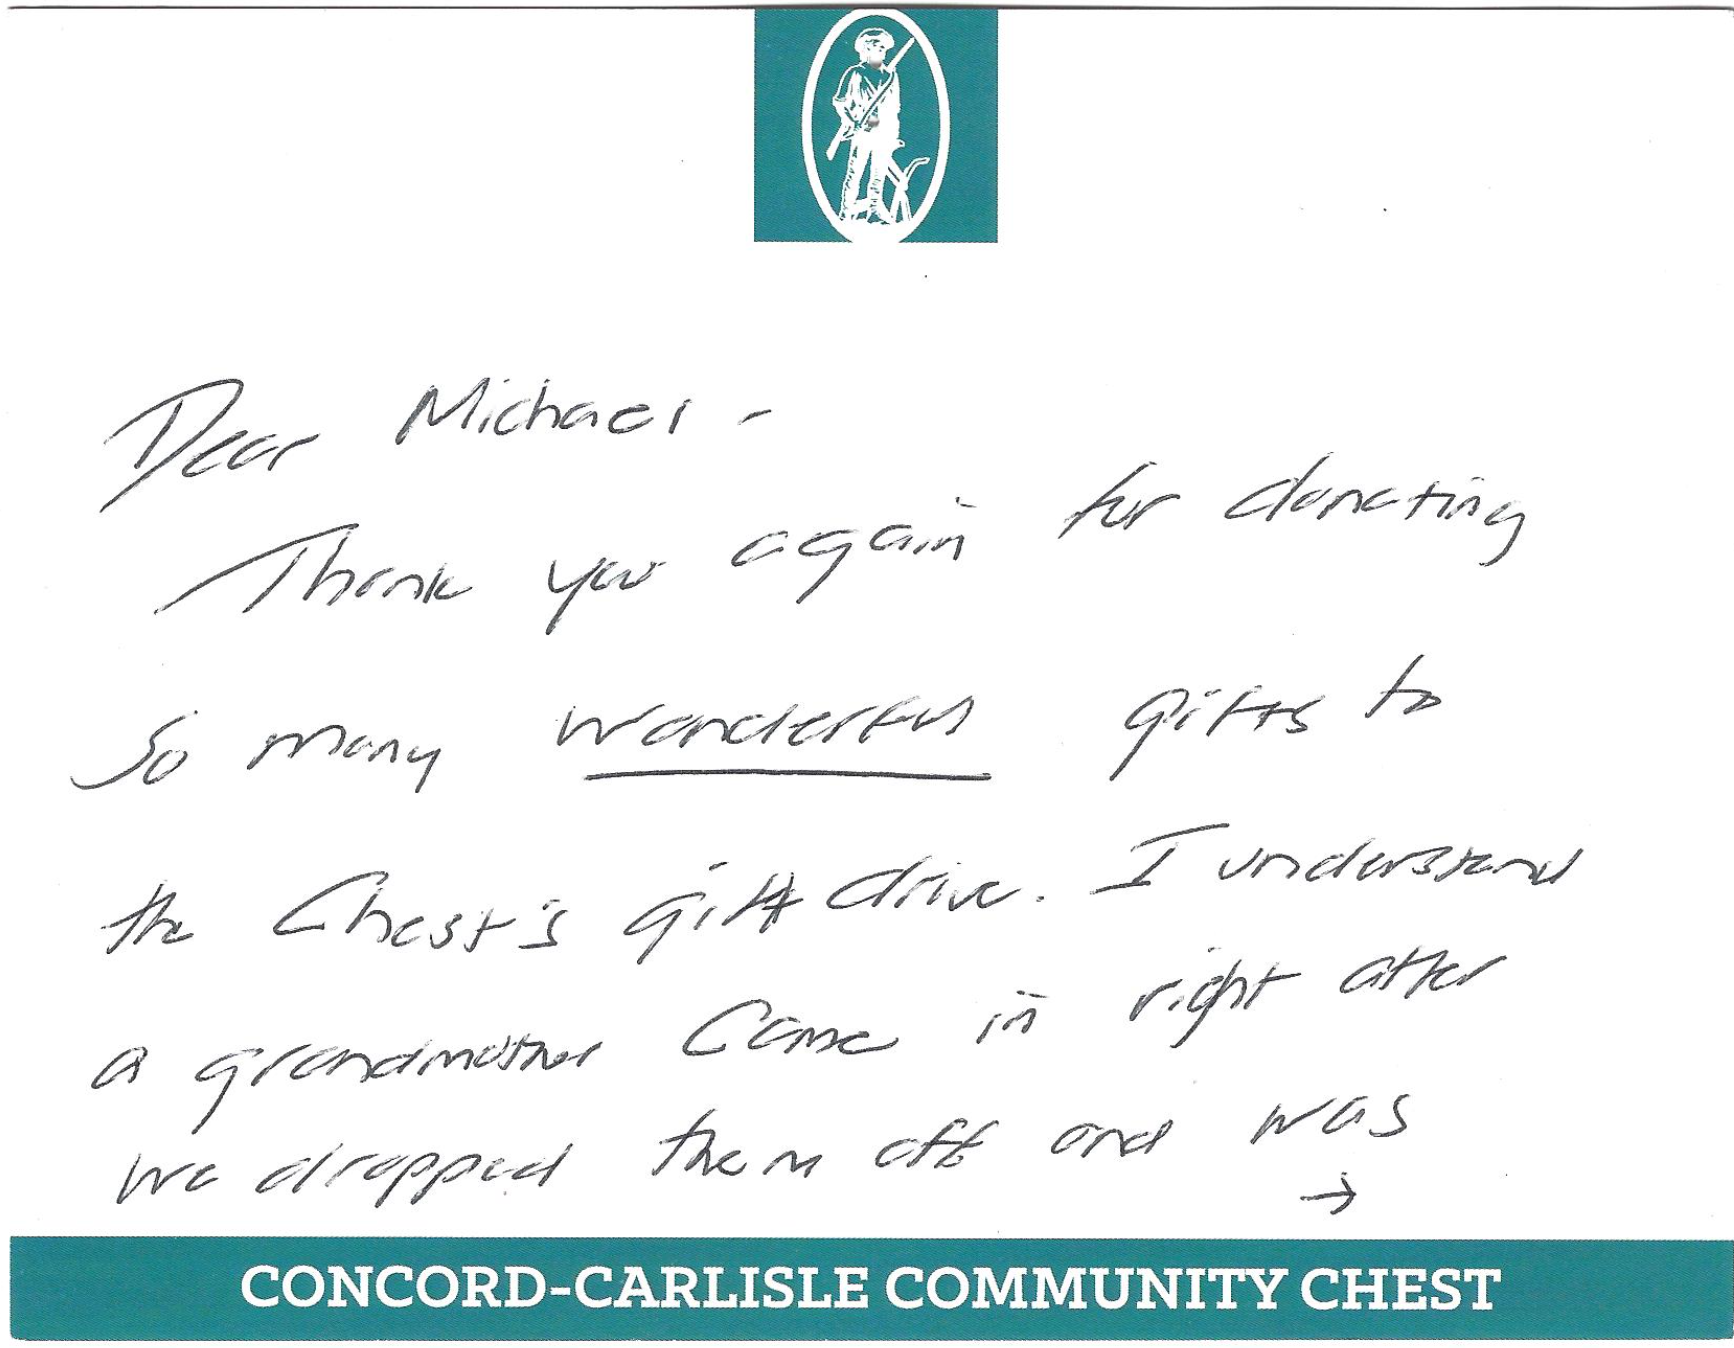 Dear Michael -
Thank you again for donating
So many wonderful gifts to
the Chest's gift drive. I understand
a grandmother came in right after
we dropped them off and was
→
CONCORD-CARLISLE COMMUNITY CHEST